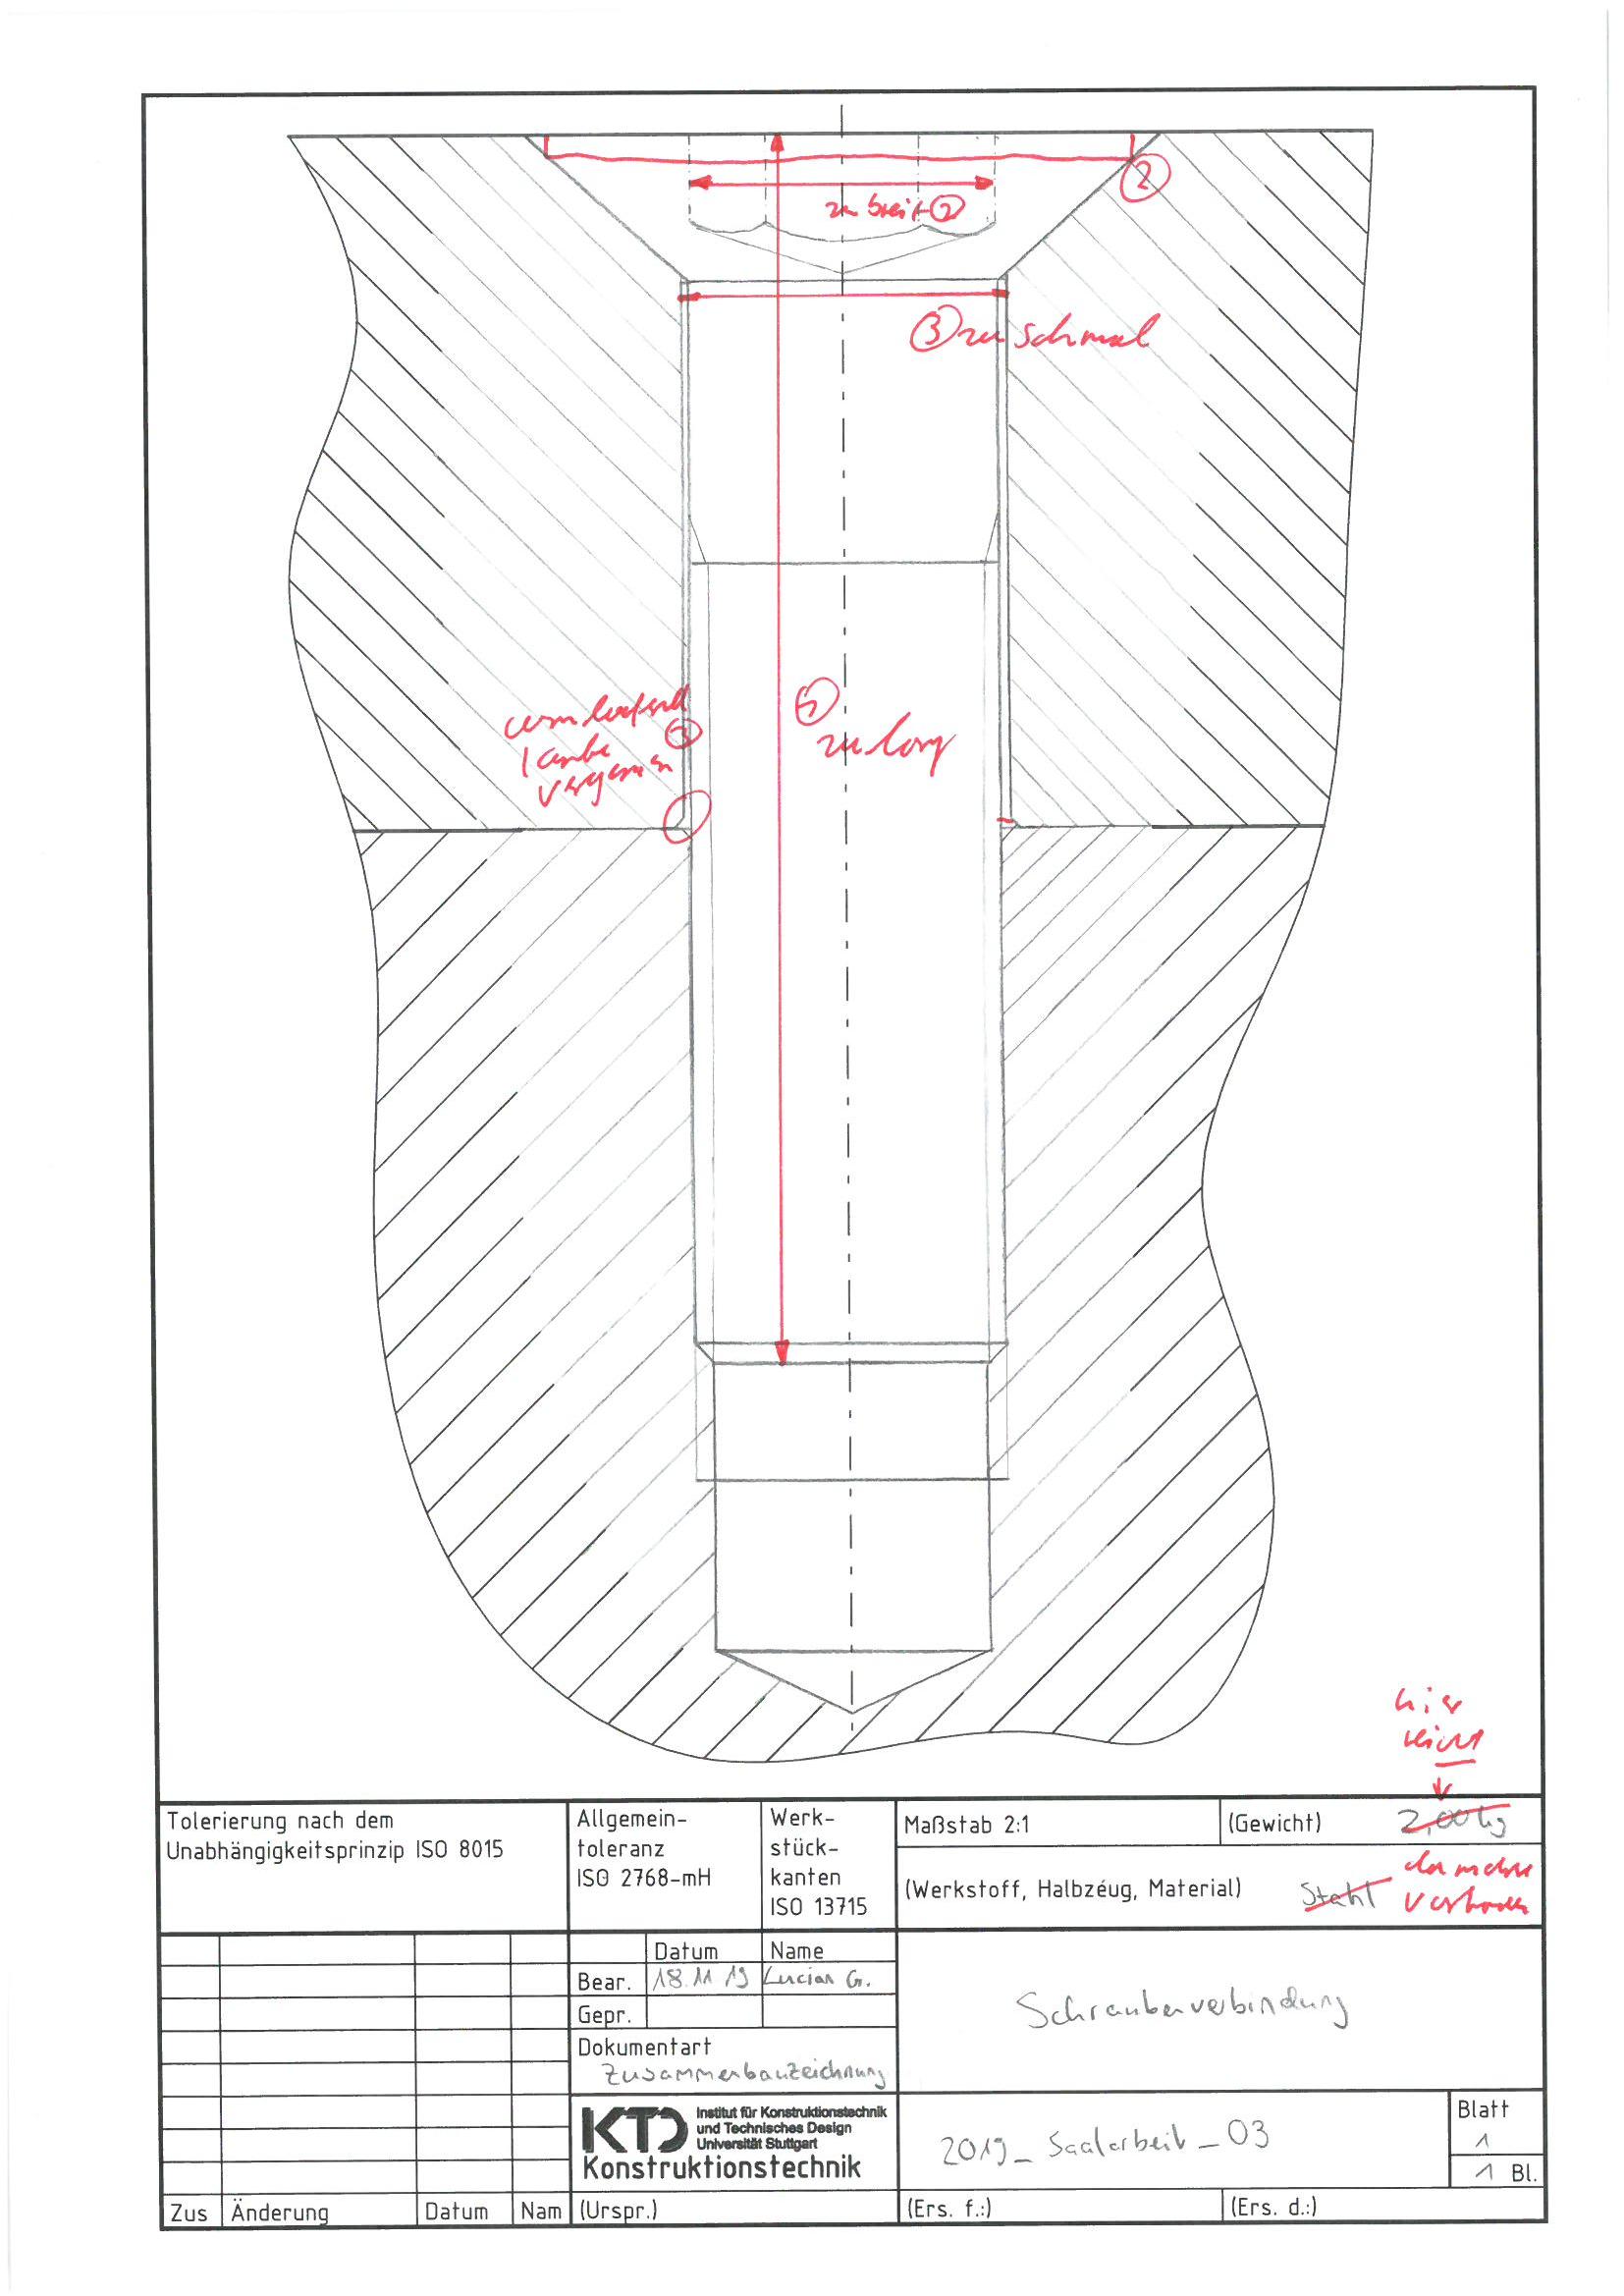 2
zu breit 2
3 zu schmal
umlaufend
kante 3
vergessen
5
zu lang
hier
nicht
Tolerierung nach dem
Unabhängigkeitsprinzip ISO 8015
Allgemein-
toleranz
ISO 2768-mH
Werk-
stück-
kanten
ISO 13715
Maßstab 2:1
(Gewicht) 2,00 kg
(Werkstoff, Halbzeug, Material) Stahl
Datum Name
Bear. 18.11.19 Lucian G.
Gepr.
Dokumentart
Zusammenbauzeichnung
Schraubenverbindung
KTD Institut für Konstruktionstechnik
und Technisches Design
Universität Stuttgart
Konstruktionstechnik
2019_Saalarbeit_03
Blatt
1
1 Bl.
Zus Änderung Datum Nam (Urspr.) (Ers. f.:) (Ers. d.:)